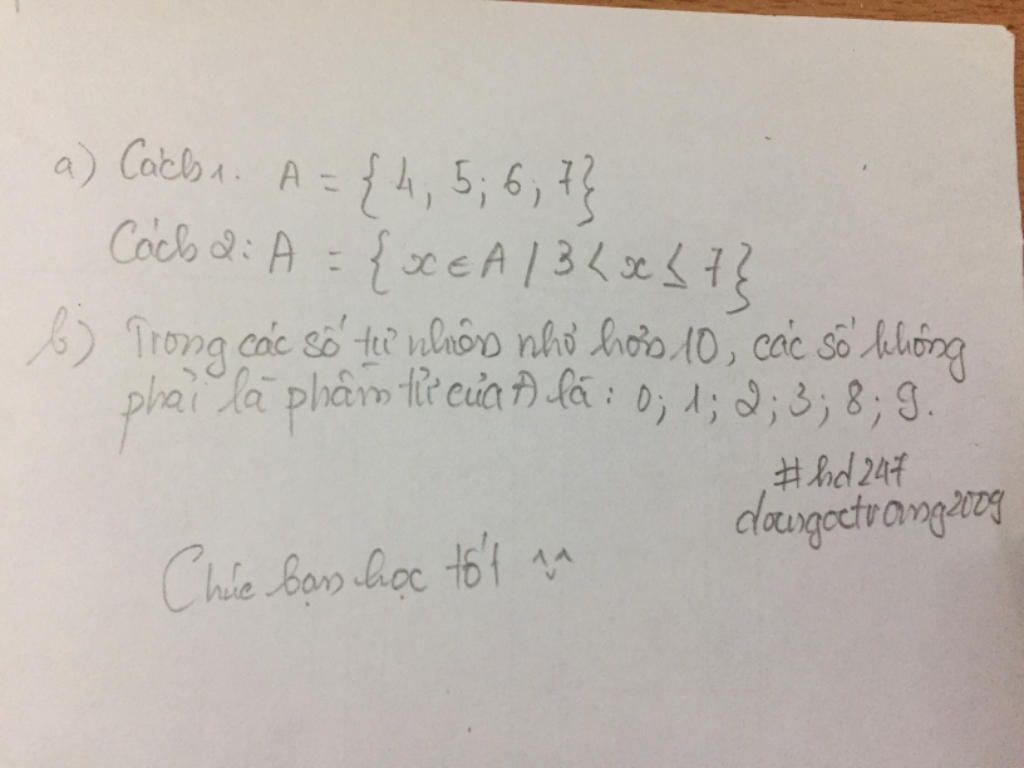 a) Cách 1. A = {4, 5; 6; 7}
Cách 2: A = {x ∈ A / 3 < x ≤ 7}
b) Trong các số tự nhiên nhỏ hơn 10, các số không
phải là phần tử của A là: 0; 1; 2; 3; 8; 9.
#hd247
daongoctrang2009
Chúc bạn học tốt ^^